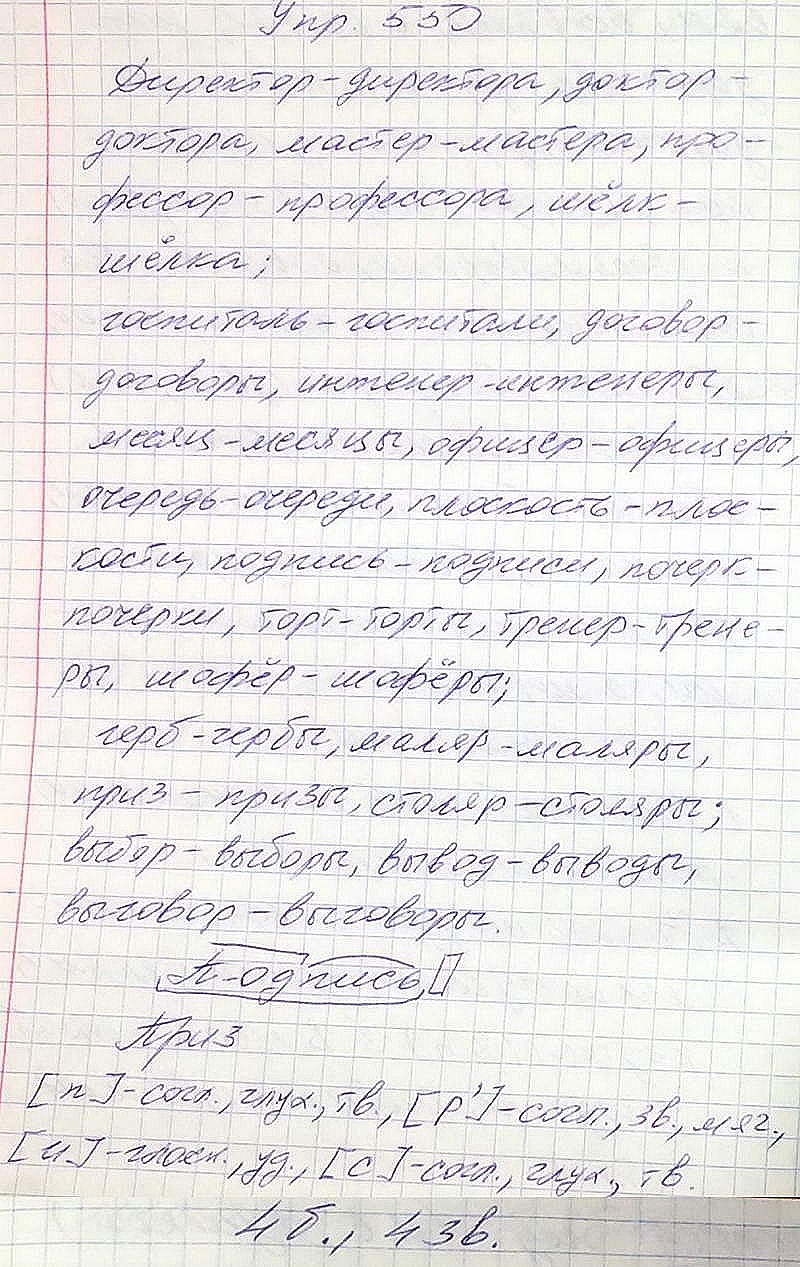 Упр. 550
Директор-директора, доктор-
доктора, мастер-мастера, про-
фессор-профессора, шёлк-
шёлка;
госпиталь-госпитали, договор-
договоры, инженер-инженеры,
месяц-месяцы, офицер-офицеры,
очередь-очереди, плоскость-плос-
кости, подпись-подписи, почерк-
почерки, торт-торты, тренер-трене-
ры, шофёр-шофёры;
герб-гербы, маляр-маляры,
приз-призы, столяр-столяры;
выбор-выборы, вывод-выводы,
выговор-выговоры.
П-одпись
Приз
[п]-согл., глух., тв., [р']-согл., зв., мяг.,
[и]-гласн., уд., [с]-согл., глух., тв.
4б., 4 зв.